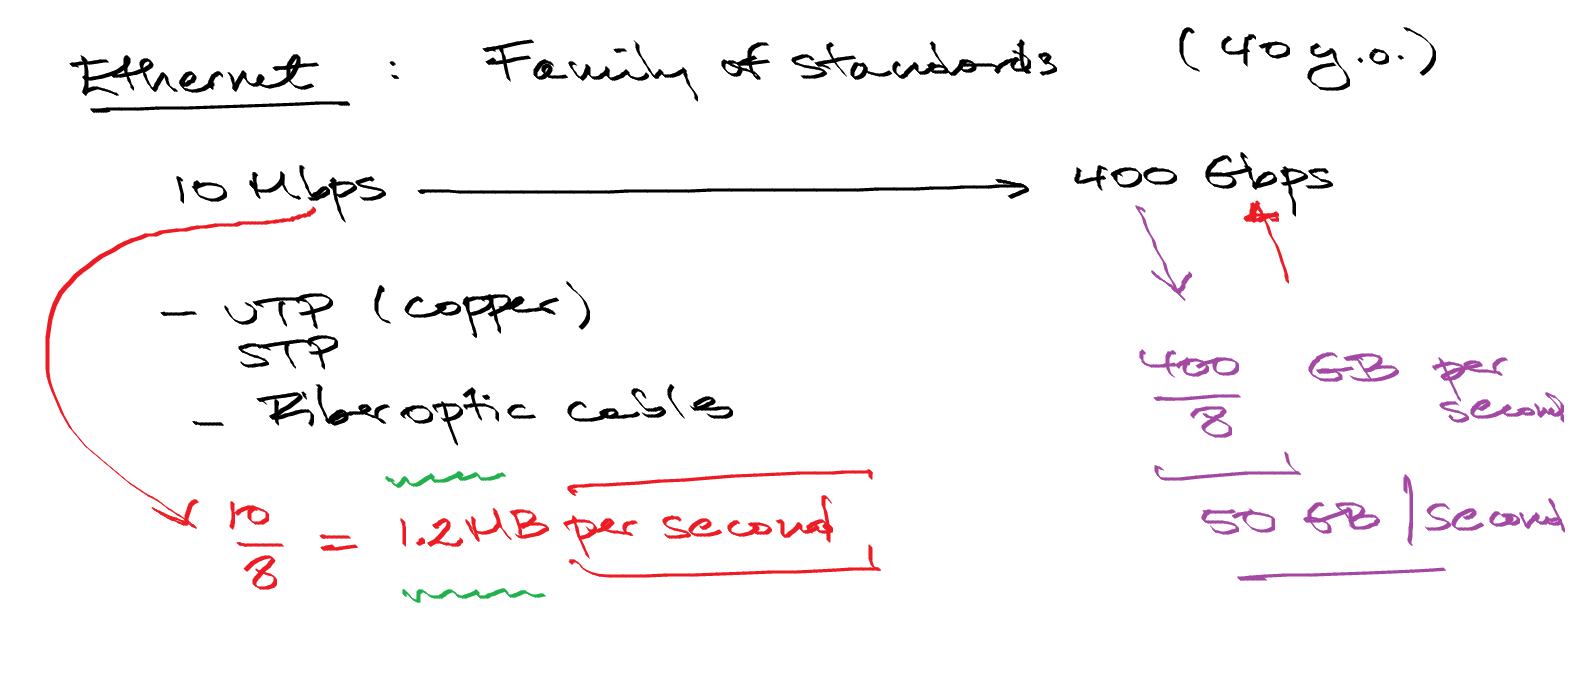 Ethernet : Family of standards (40 y.o.)
10 Mbps → 400 Gbps
- UTP (copper)
STP
- Fiberoptic cables
10/8 = 1.2 MB per second
400/8 GB per second
50 GB / second